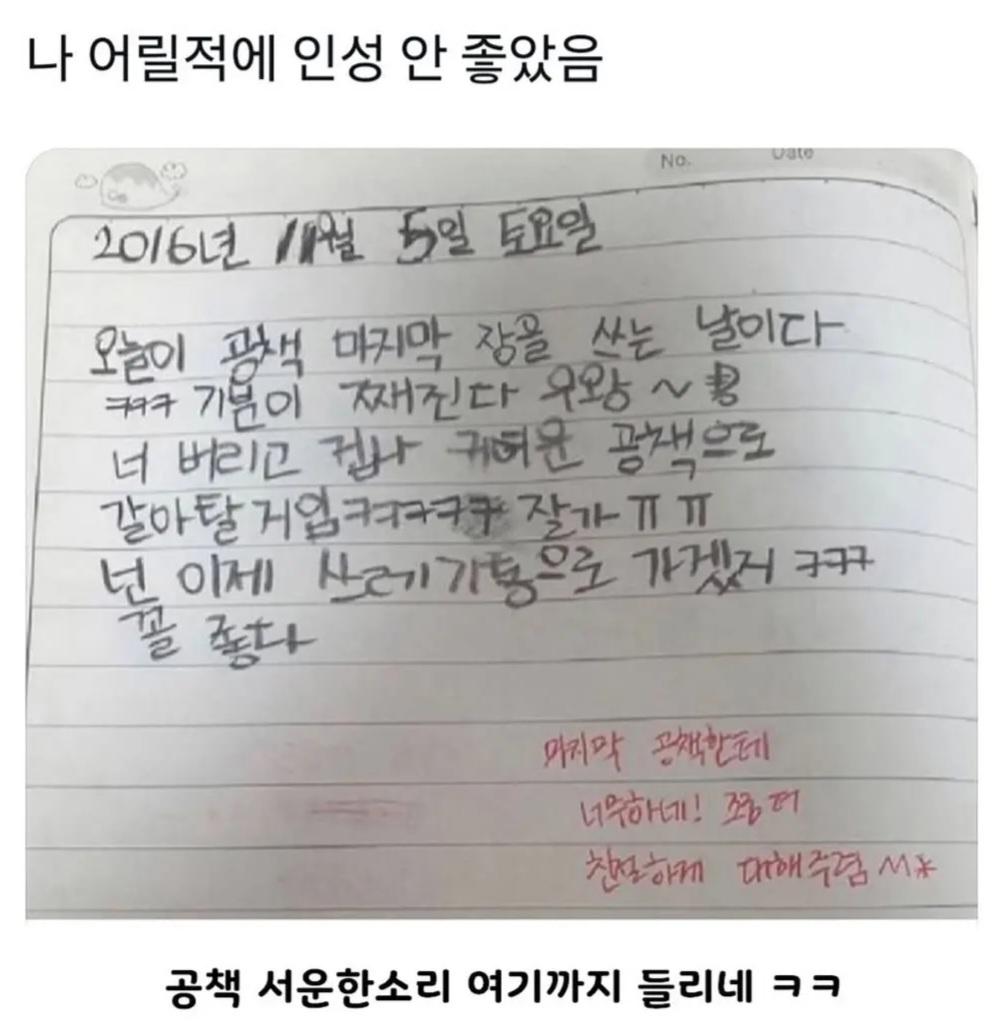 나 어릴적에 인성 안 좋았음
No. Date
2016년 11월 5일 토요일
오늘이 공책 마지막 장을 쓰는 날이다
ㅋㅋㅋ 기분이 째진다 우왕~
너 버리고 겁나 귀여운 공책으로
갈아탈거임ㅋㅋㅋㅋㅋ 잘가ㅠㅠ
넌 이제 쓰레기통으로 가겠지 ㅋㅋㅋ
꼴 좋다
마지막 공책한테
너무하네! 조금 더
친절하게 대해주렴
공책 서운한소리 여기까지 들리네 ㅋㅋ